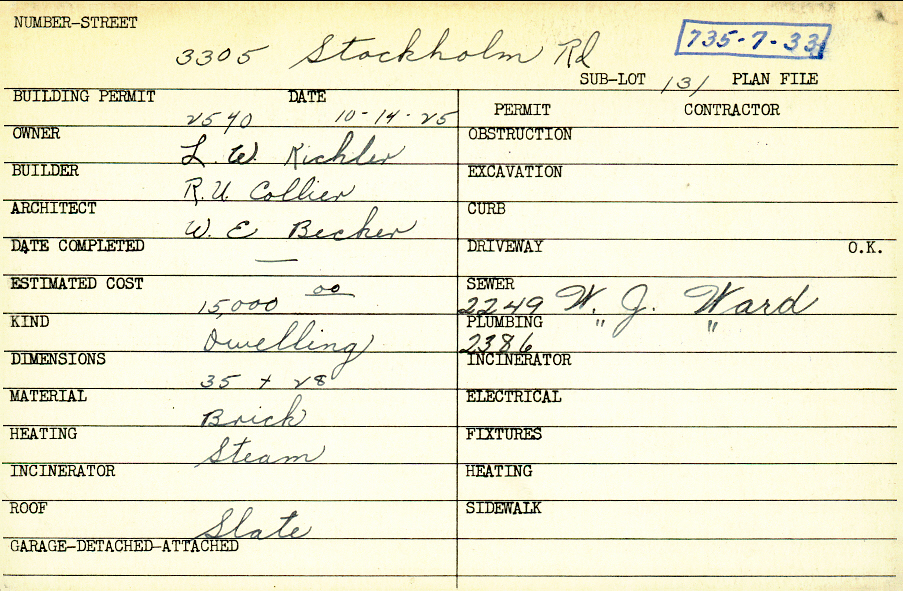 NUMBER-STREET
3305 Stockholm Rd
735-7-33
SUB-LOT 131 PLAN FILE
BUILDING PERMIT 2540 DATE 10-14-25
OWNER L. W. Richler
BUILDER R. U. Collier
ARCHITECT W. E Becher
DATE COMPLETED —
ESTIMATED COST 15,000 00
KIND Dwelling
DIMENSIONS 35 + 28
MATERIAL Brick
HEATING Steam
INCINERATOR
ROOF Slate
GARAGE-DETACHED-ATTACHED
PERMIT CONTRACTOR
OBSTRUCTION
EXCAVATION
CURB
DRIVEWAY O.K.
SEWER 2249 W. J. Ward
PLUMBING 2386 " "
INCINERATOR
ELECTRICAL
FIXTURES
HEATING
SIDEWALK